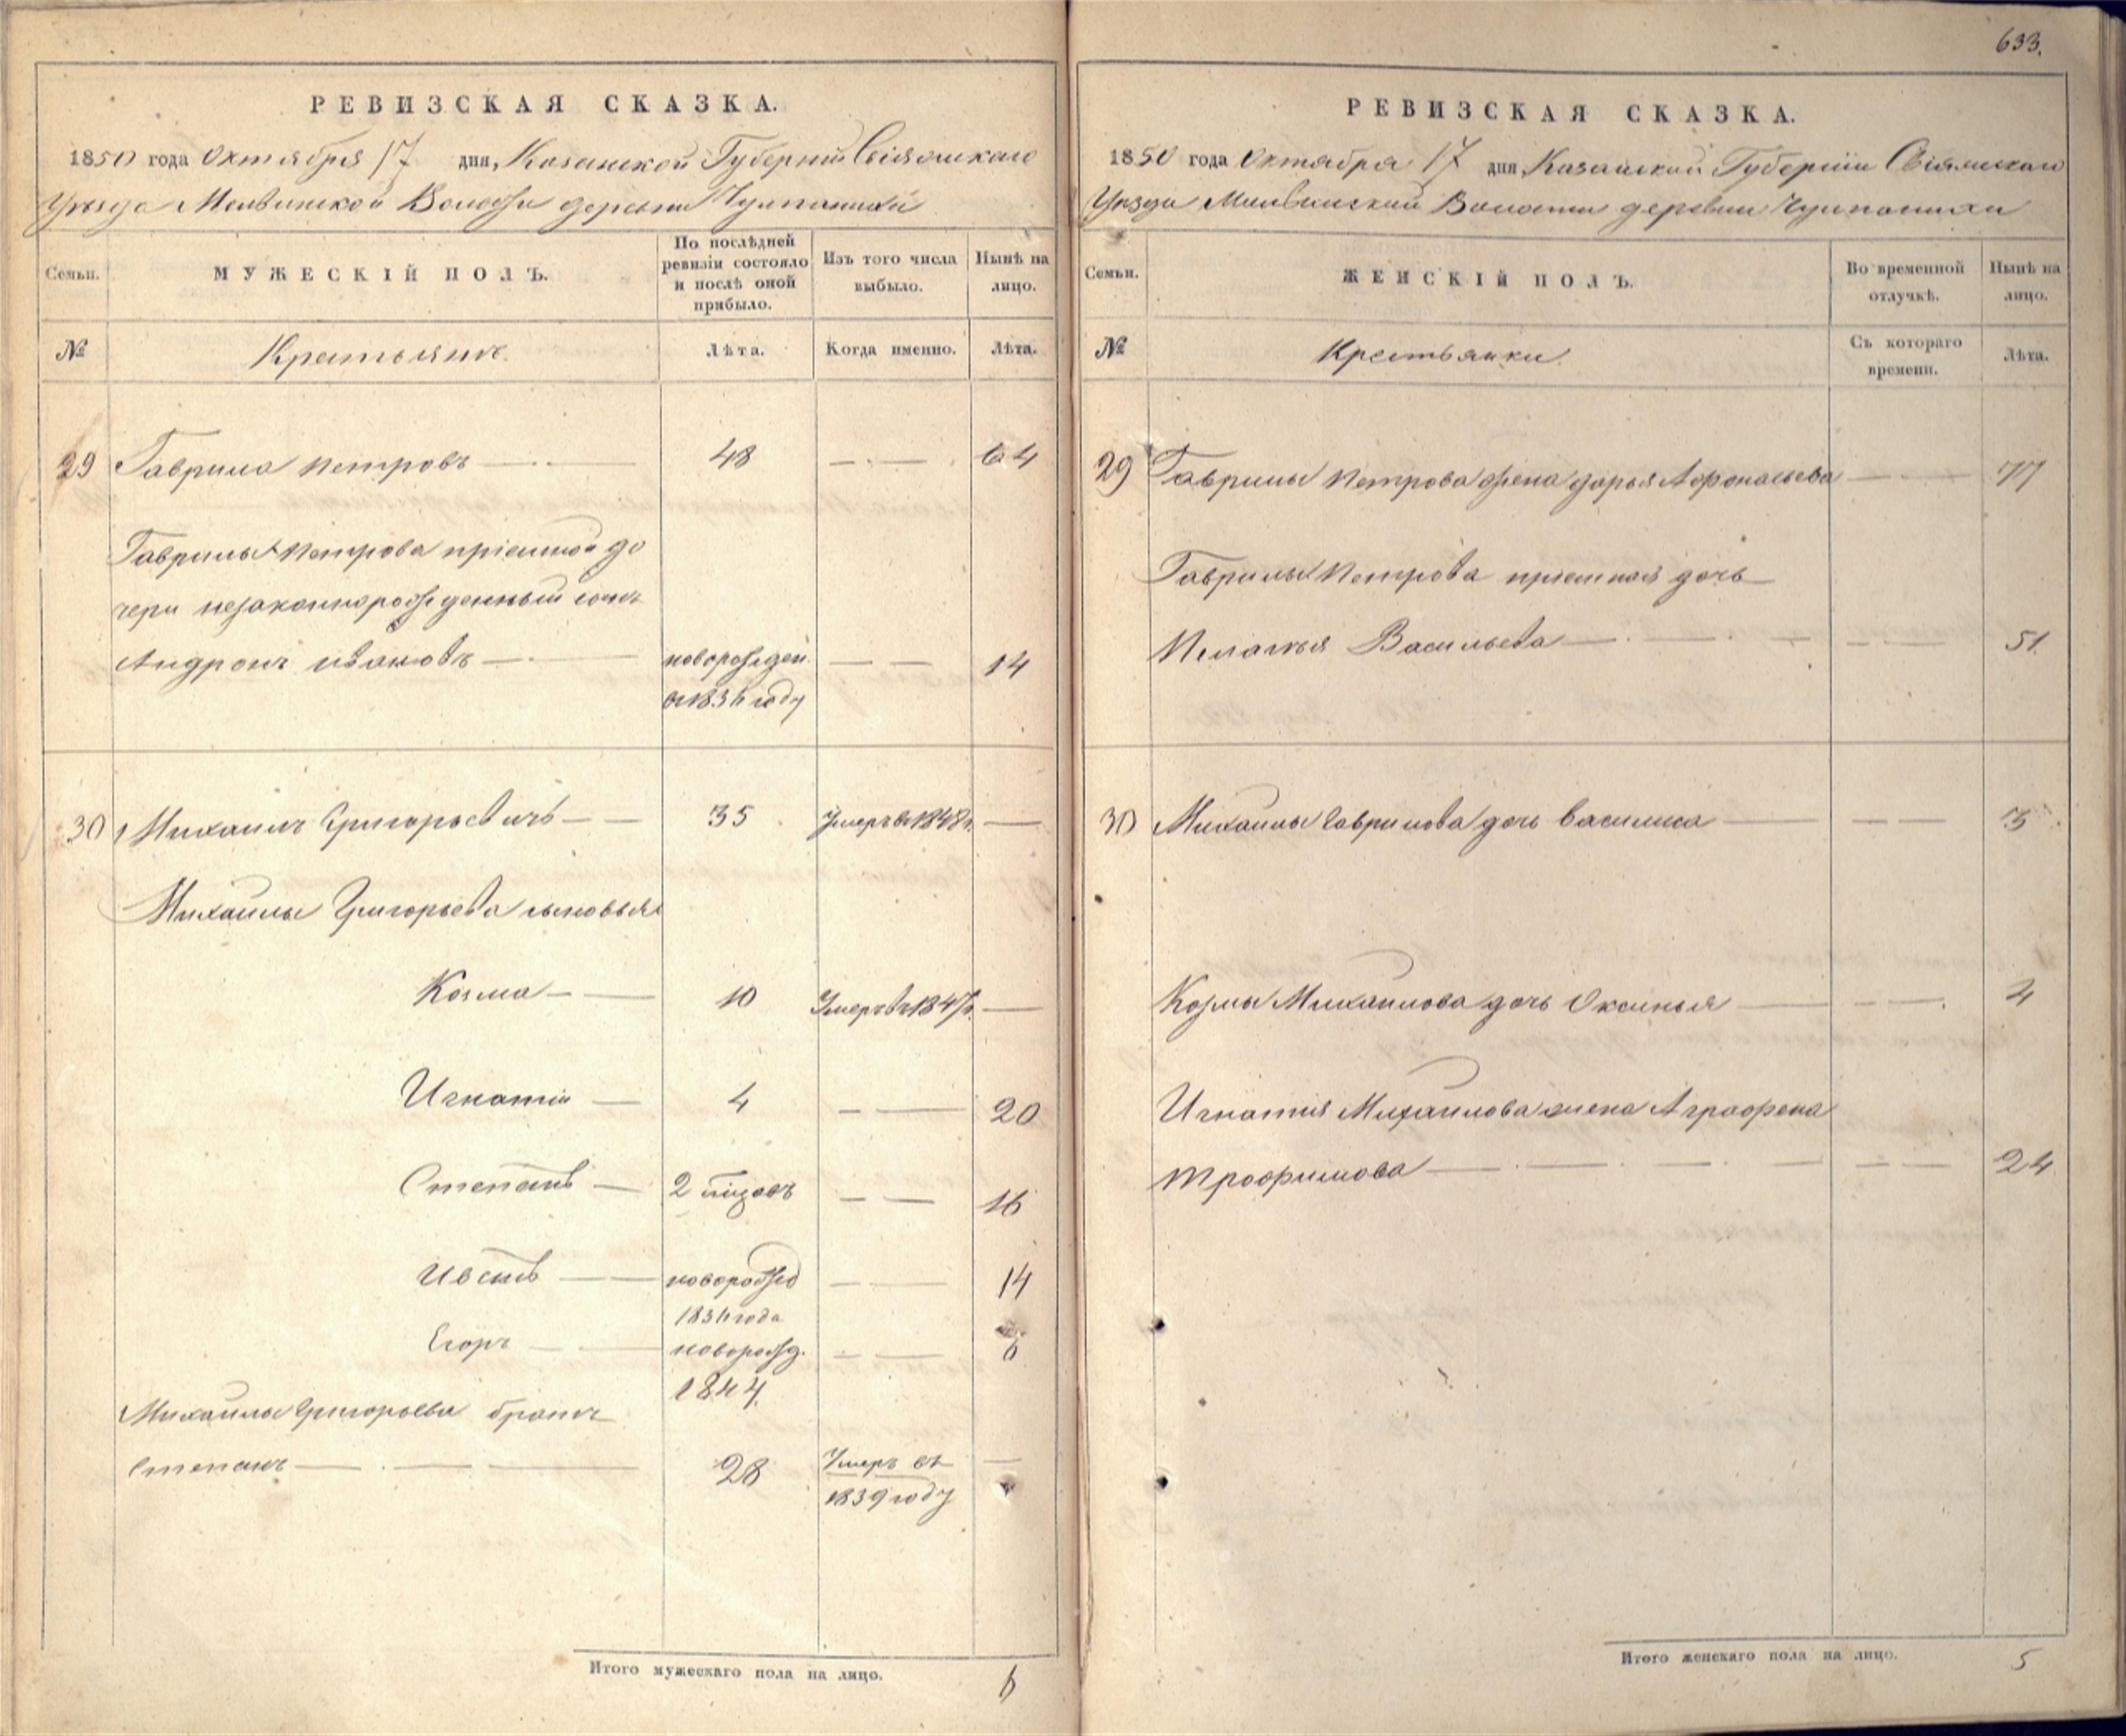 633.
РЕВИЗСКАЯ СКАЗКА.
1850 года Октября 17 дня, Казанской Губерніи Свіяжскаго
Уѣзда Волости деревни
Семьи. МУЖЕСКІЙ ПОЛЪ. По послѣдней ревизіи состояло и послѣ оной прибыло. Изъ того числа выбыло. Нынѣ на лицо.
№ Крестьянъ. Лѣта. Когда именно. Лѣта.
29 Гаврила Петровъ 48 — — 64
Гаврилы Петрова пріемной до
чери незаконнорожденный сынъ
Андронъ Ивановъ новорожден. — — 14
въ 1836 году
30 Михаилъ Григорьевичъ 35 Умеръ въ 1848 г. —
Михаилы Григорьева сыновья
Козма 10 Умеръ въ 1847 г. —
Игнатій 4 — — 20
Степанъ — — 16
новорожд — — 14
1836 года
Егоръ новорожд. — — 6
1844.
Михаилы Григорьева братъ
Степанъ 28 Умеръ въ —
1839 году
Итого мужескаго пола на лицо. 6
РЕВИЗСКАЯ СКАЗКА.
1850 года Октября 17 дня, Казанской Губерніи Свіяжскаго
Уѣзда Волости деревни
Семьи. ЖЕНСКІЙ ПОЛЪ. Во временной отлучкѣ. Нынѣ на лицо.
№ Крестьянки. Съ котораго времени. Лѣта.
29 Гаврилы Петрова жена Дарья Афонасьева — — 77
Гаврилы Петрова пріемная дочь
Пелагѣя Васильева — — 51.
30 Михаилы Гаврилова дочь Василиса — — 3
Козмы Михаилова дочь Оксинья — — 4
Игнатия Михаилова жена Аграфена
Трофимова — — 24
Итого женскаго пола на лицо. 5